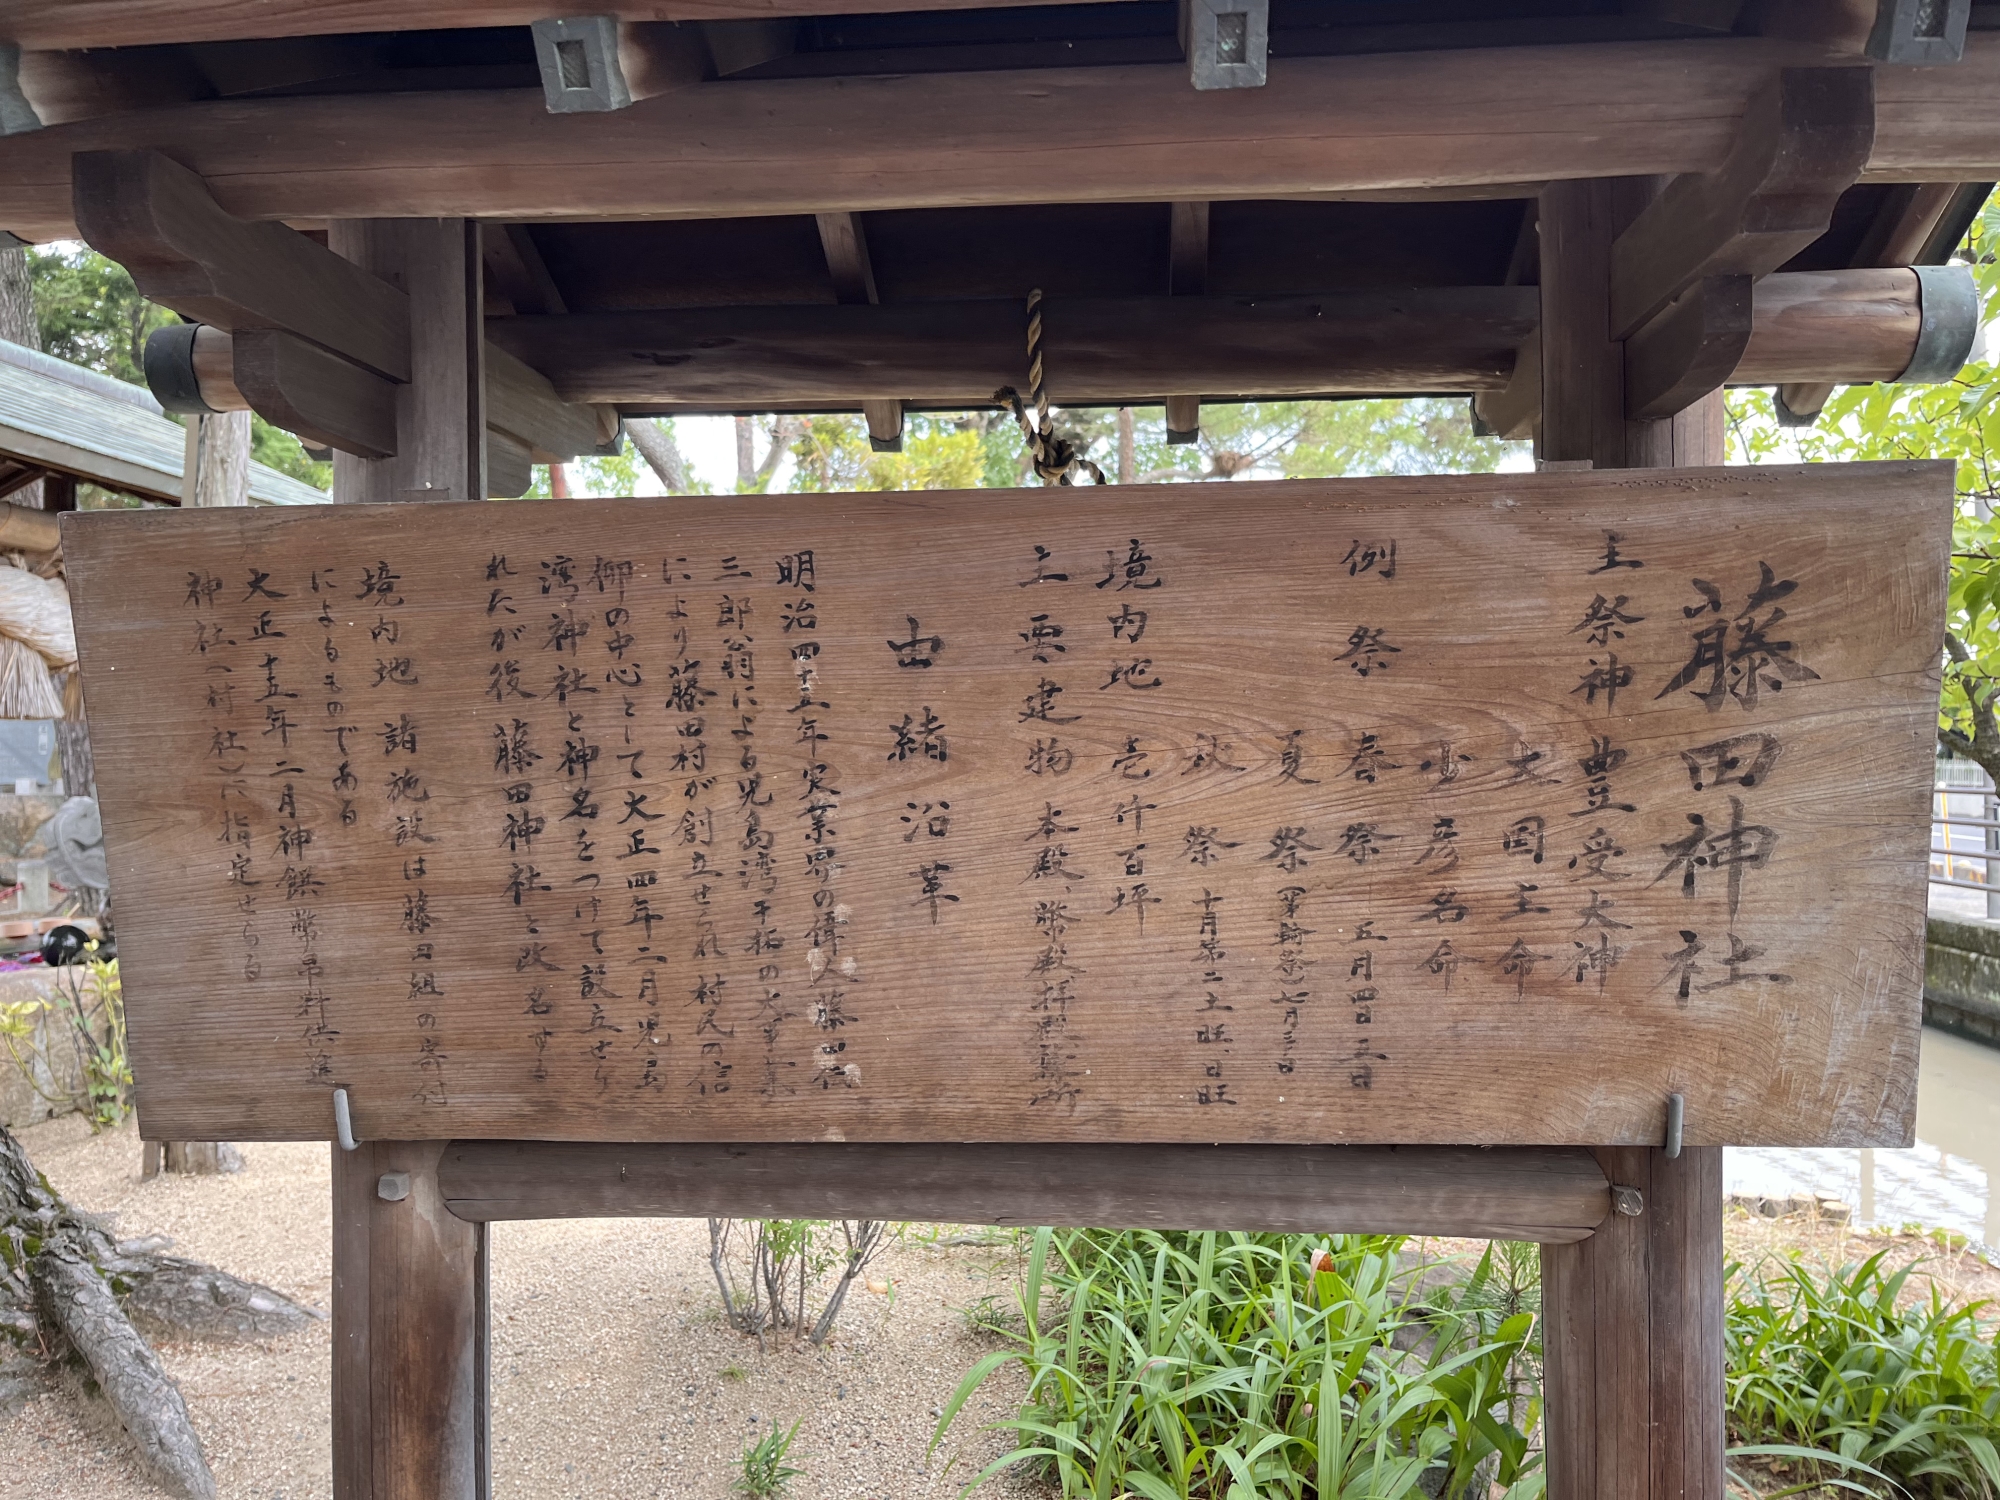 藤田神社
主祭神 豊受大神
大国主命
少彦名命
例祭 春祭 五月四日 五日
夏祭(茅輪祭)七月三日
秋祭 十月第二土旺、日旺
境内地 壱仟百坪
主要建物 本殿、幣殿、拝殿
由緒沿革
明治四十五年実業界の偉人藤田伝
三郎翁による児島湾干拓の大事業
により藤田村が創立せられ村民の信
仰の中心として大正四年二月児島
湾神社と神名をつけて設立せら
れたが後藤田神社と改名する
境内地 諸施設は藤田組の寄付
によるものである
大正十五年二月神饌幣帛料供進
神社(村社)に指定せらる